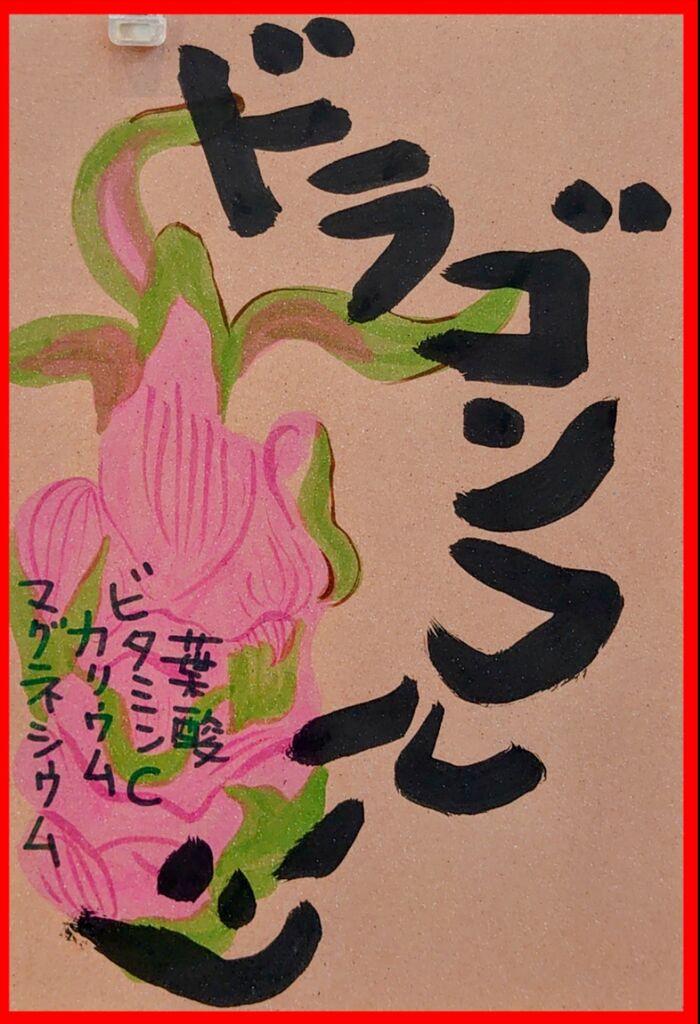 ドラゴンフルーツ
葉酸
ビタミンC
カリウム
マグネシウム